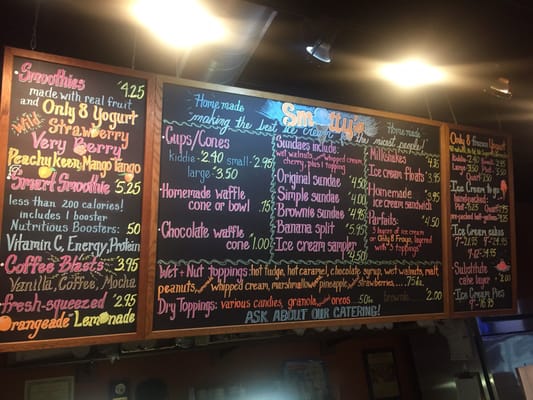 Smoothies 4.25
made with real fruit
and Only 8 Yogurt
Wild Strawberry
Very Berry
Peachy Keen Mango Tango
Smart Smoothie 5.25
less than 200 calories!
includes 1 booster
Nutritious Boosters: .50
Vitamin C, Energy, Protein
Coffee Blasts 3.95
Vanilla, Coffee, Mocha
fresh-squeezed 2.95
Orangeade Lemonade
Homemade Homemade
making the best ice cream the nicest people!
Cups/Cones
kiddie 2.40 small 2.95
large 3.50
Homemade waffle
cone or bowl .75
Chocolate waffle
cone 1.00
Sundaes include:
wet walnuts whipped cream
cherry
Original sundae 4.50
Simple sundae 4.00
Brownie sundae 4.95
Banana split 5.95
Ice cream sampler 4.50
Milkshakes 4.35
Ice cream Floats
Homemade
ice cream sandwich
Parfaits 4.50
3 layers of ice cream
or Only 8 Froyo, layered
with 3 toppings
Wet + Nut toppings: hot fudge, hot caramel, chocolate syrup, wet walnuts, malt
peanuts, whipped cream, marshmallow, pineapple, strawberries .75 ea.
Dry Toppings: various candies, granola, oreos .50 brownie 2.00
ASK ABOUT OUR CATERING!
Only 8 Frozen Yogurt
Kiddie
Small
Large
Pint
Quart
Ice Cream To go
hand-packed
Pint
Quart
pre-packed half-gallon
Ice Cream Cakes
Substitute
cake layer
Ice Cream Pies